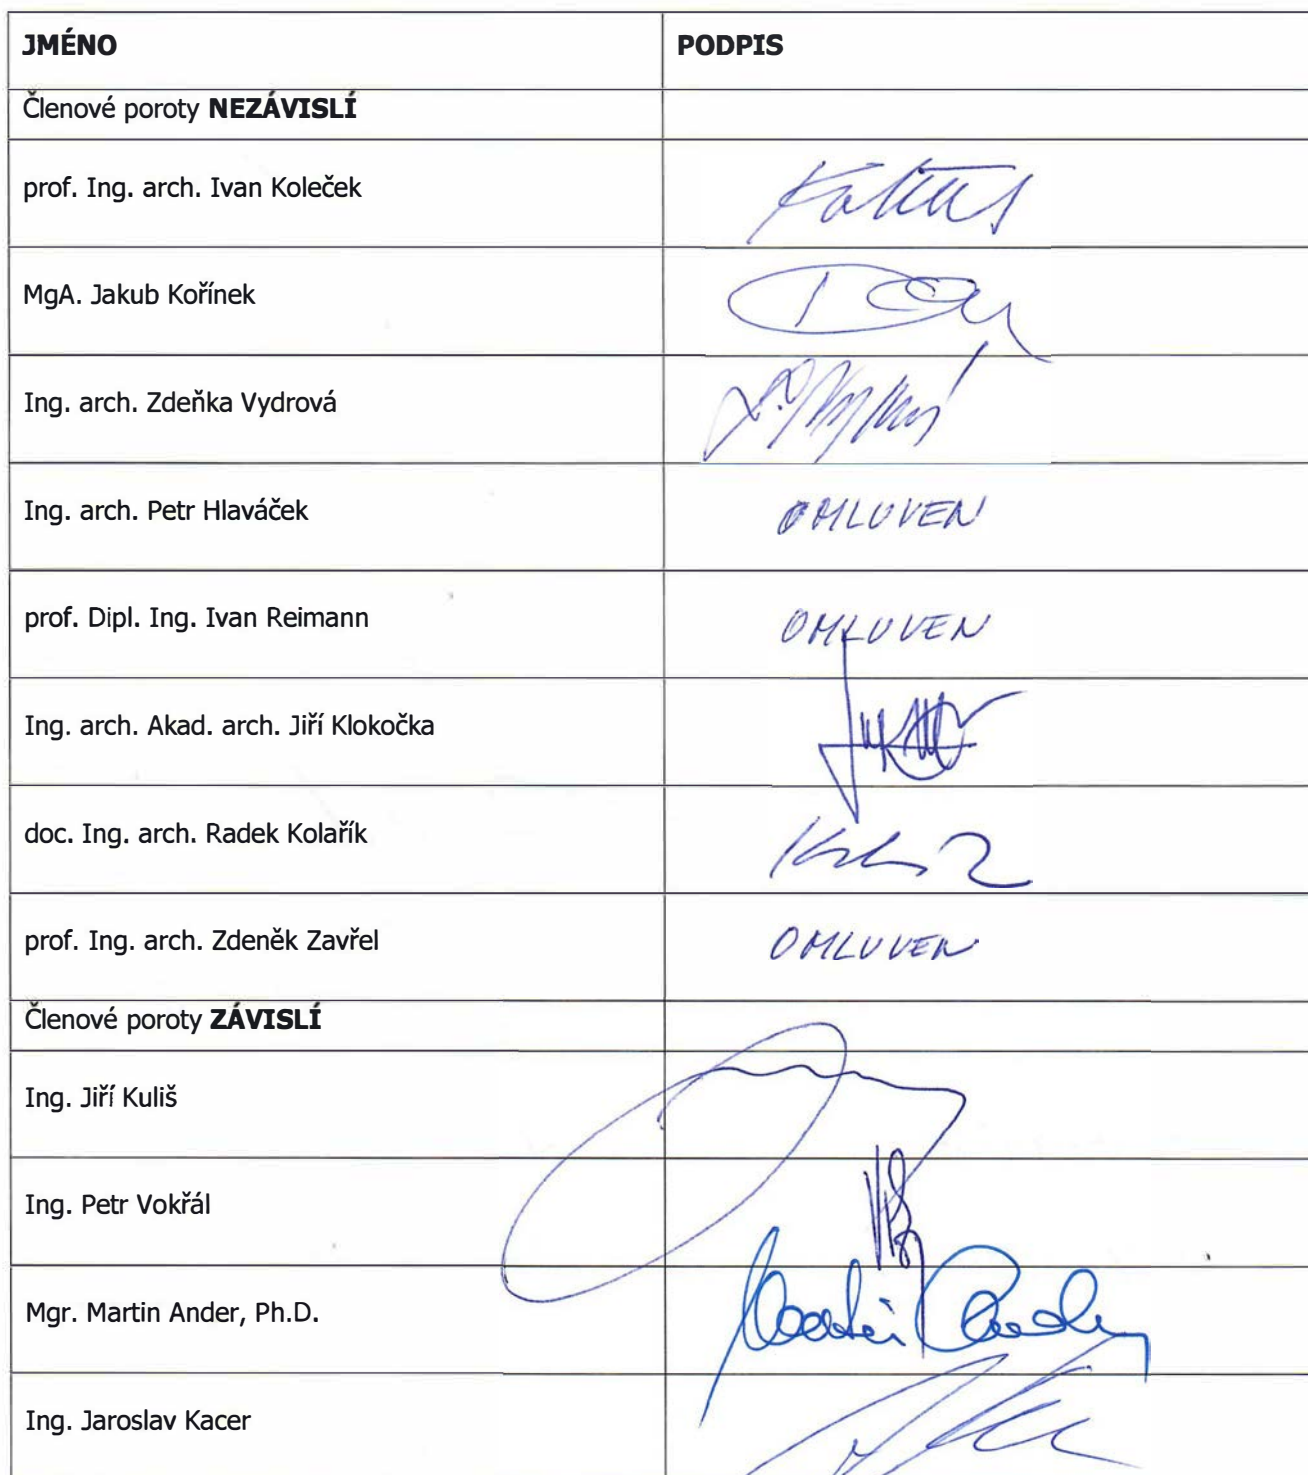 JMÉNO PODPIS
Členové poroty NEZÁVISLÍ
prof. Ing. arch. Ivan Koleček
MgA. Jakub Kořínek
Ing. arch. Zdeňka Vydrová
Ing. arch. Petr Hlaváček OMLUVEN
prof. Dipl. Ing. Ivan Reimann OMLUVEN
Ing. arch. Akad. arch. Jiří Klokočka
doc. Ing. arch. Radek Kolařík
prof. Ing. arch. Zdeněk Zavřel OMLUVEN
Členové poroty ZÁVISLÍ
Ing. Jiří Kuliš
Ing. Petr Vokřál
Mgr. Martin Ander, Ph.D.
Ing. Jaroslav Kacer